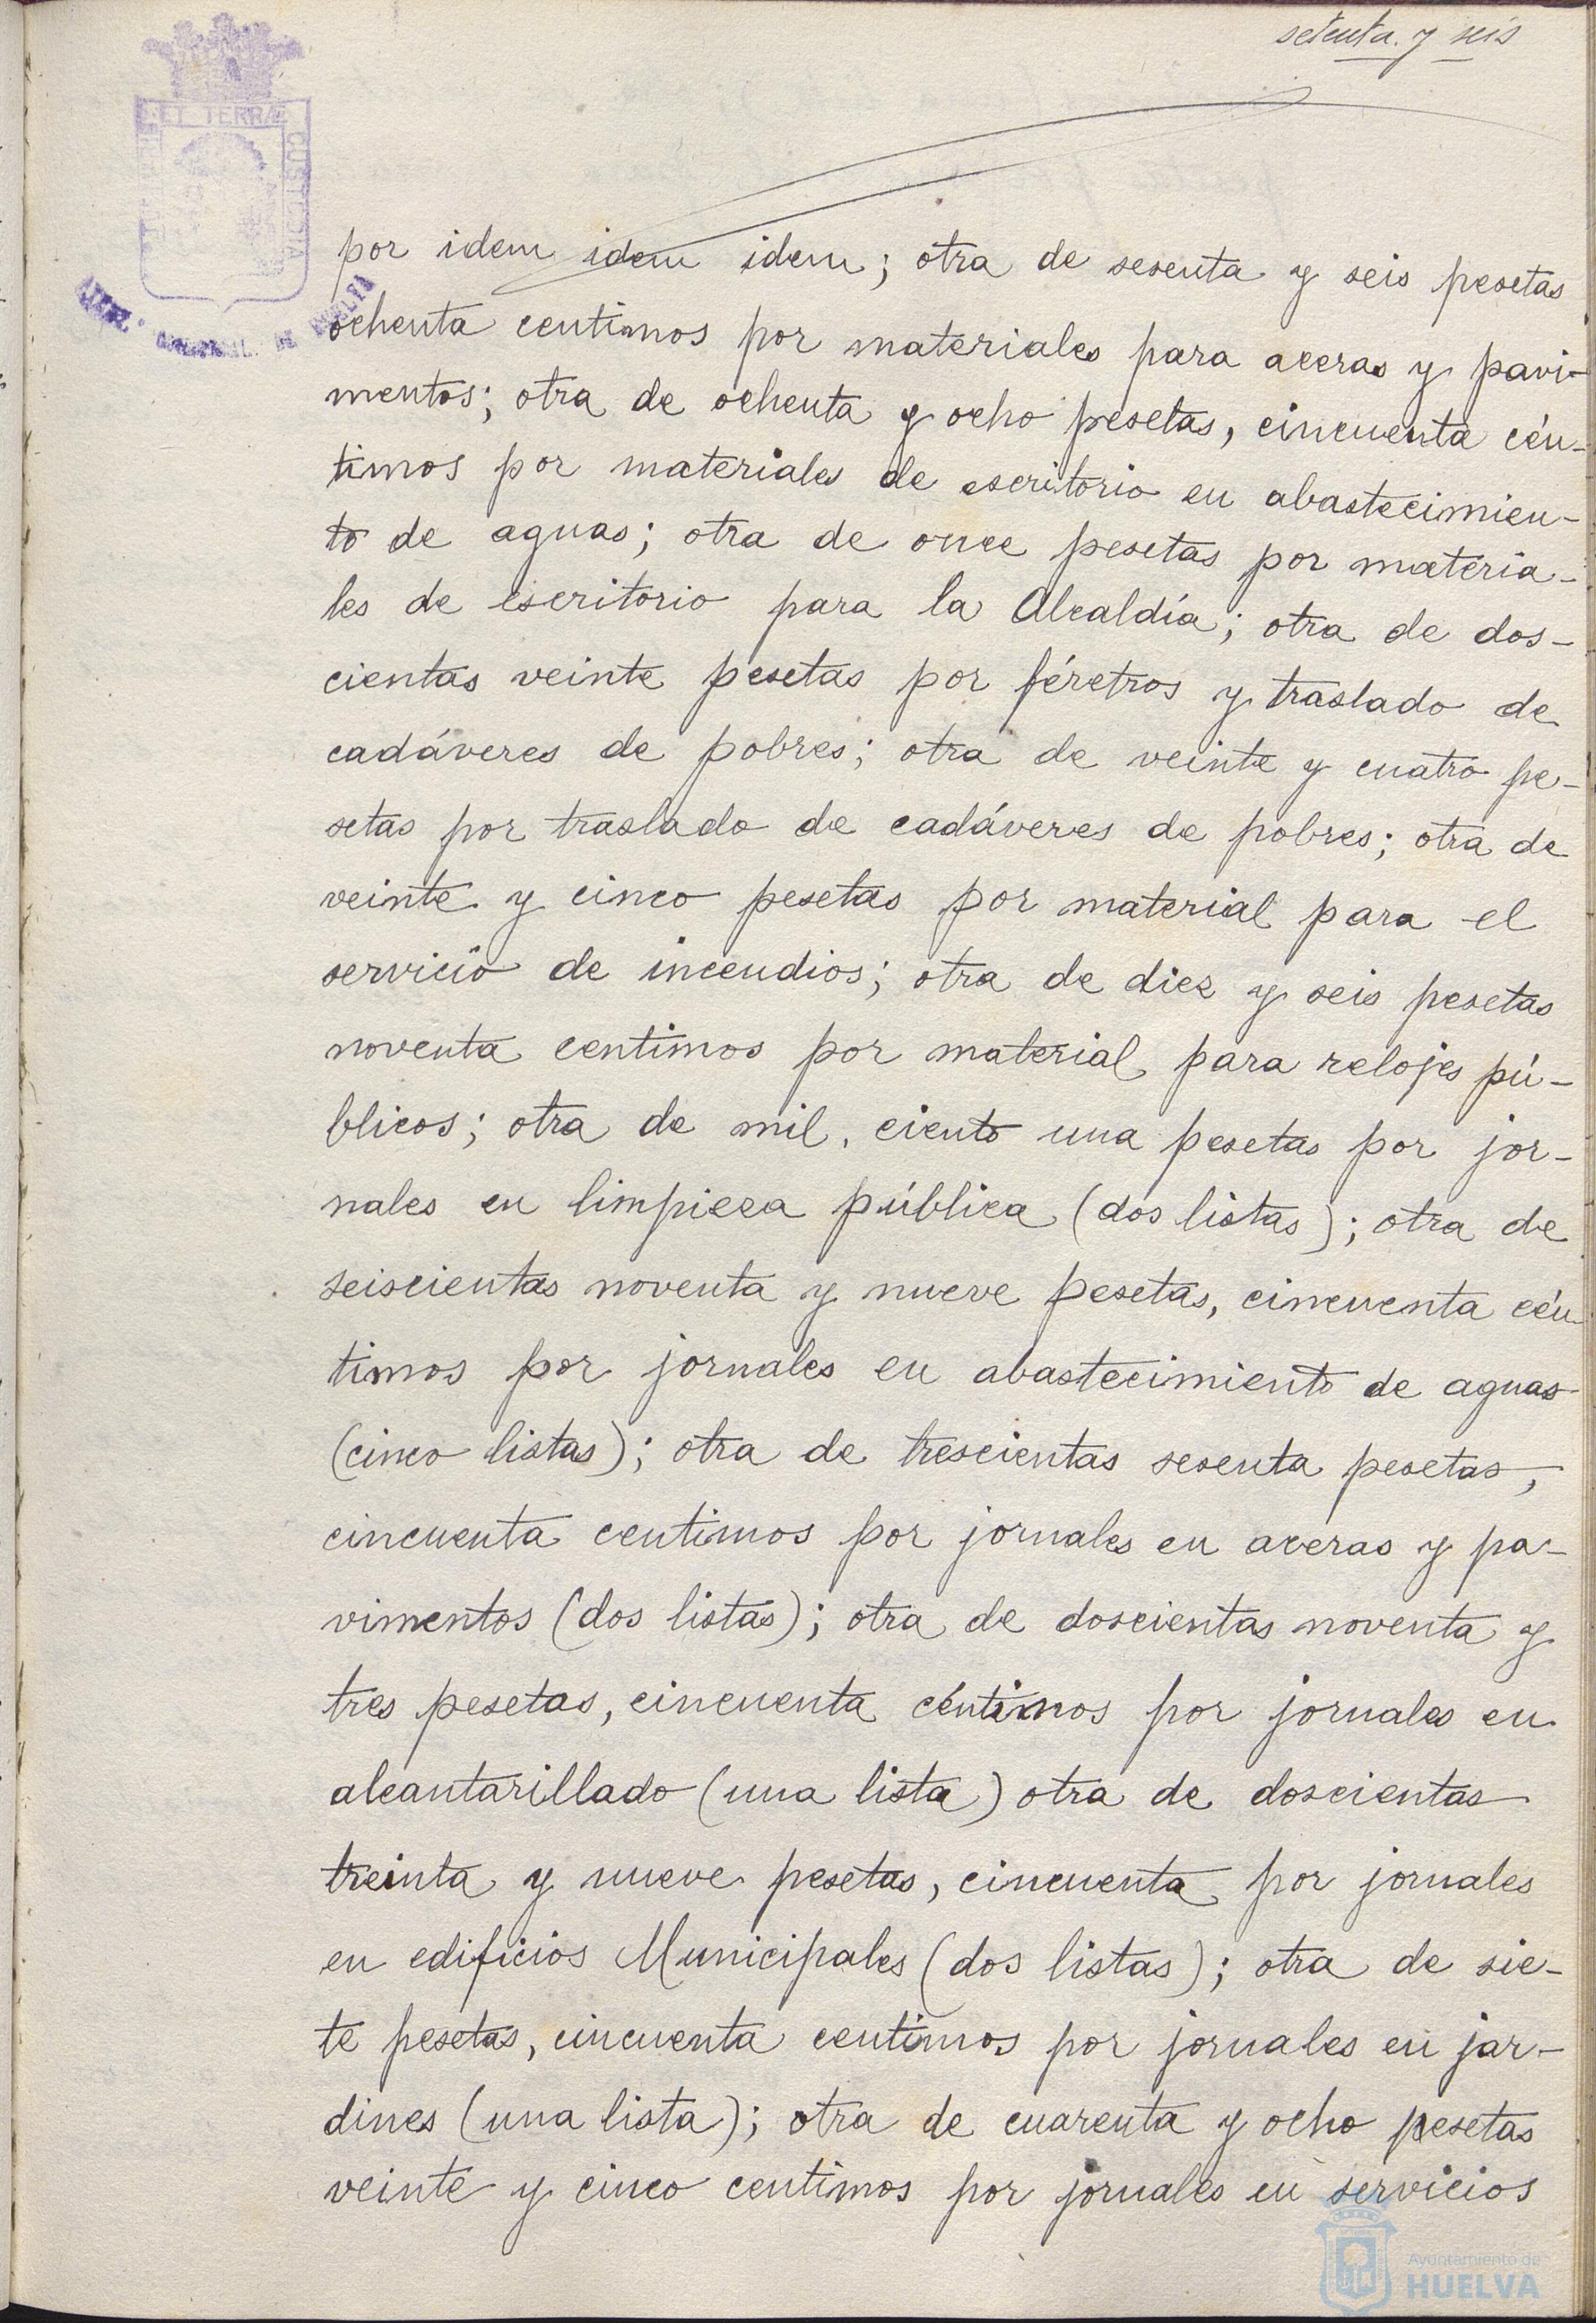 setenta y seis
ET TERRÆ
CUSTODIA
DE HUELVA
por idem idem idem; otra de sesenta y seis pesetas
ochenta centimos por materiales para aceras y pavi-
mentos; otra de ochenta y ocho pesetas, cincuenta cén-
timos por materiales de escritorio en abastecimien-
to de aguas; otra de once pesetas por materia-
les de escritorio para la Alcaldía; otra de dos-
cientas veinte pesetas por féretros y traslado de
cadáveres de pobres; otra de veinte y cuatro pe-
setas por traslado de cadáveres de pobres; otra de
veinte y cinco pesetas por material para el
servicio de incendios; otra de diez y seis pesetas
noventa centimos por material para relojes pú-
blicos; otra de mil, ciento una pesetas por jor-
nales en limpieza pública (dos listas); otra de
seiscientas noventa y nueve pesetas, cincuenta cén
timos por jornales en abastecimiento de aguas
(cinco listas); otra de trescientas sesenta pesetas,
cincuenta centimos por jornales en aceras y pa-
vimentos (dos listas); otra de doscientas noventa y
tres pesetas, cincuenta céntimos por jornales en
alcantarillado (una lista) otra de doscientas
treinta y nueve pesetas, cincuenta por jornales
en edificios Municipales (dos listas); otra de sie-
te pesetas, cincuenta centimos por jornales en jar-
dines (una lista); otra de cuarenta y ocho pesetas
veinte y cinco centimos por jornales en servicios
Ayuntamiento de
HUELVA